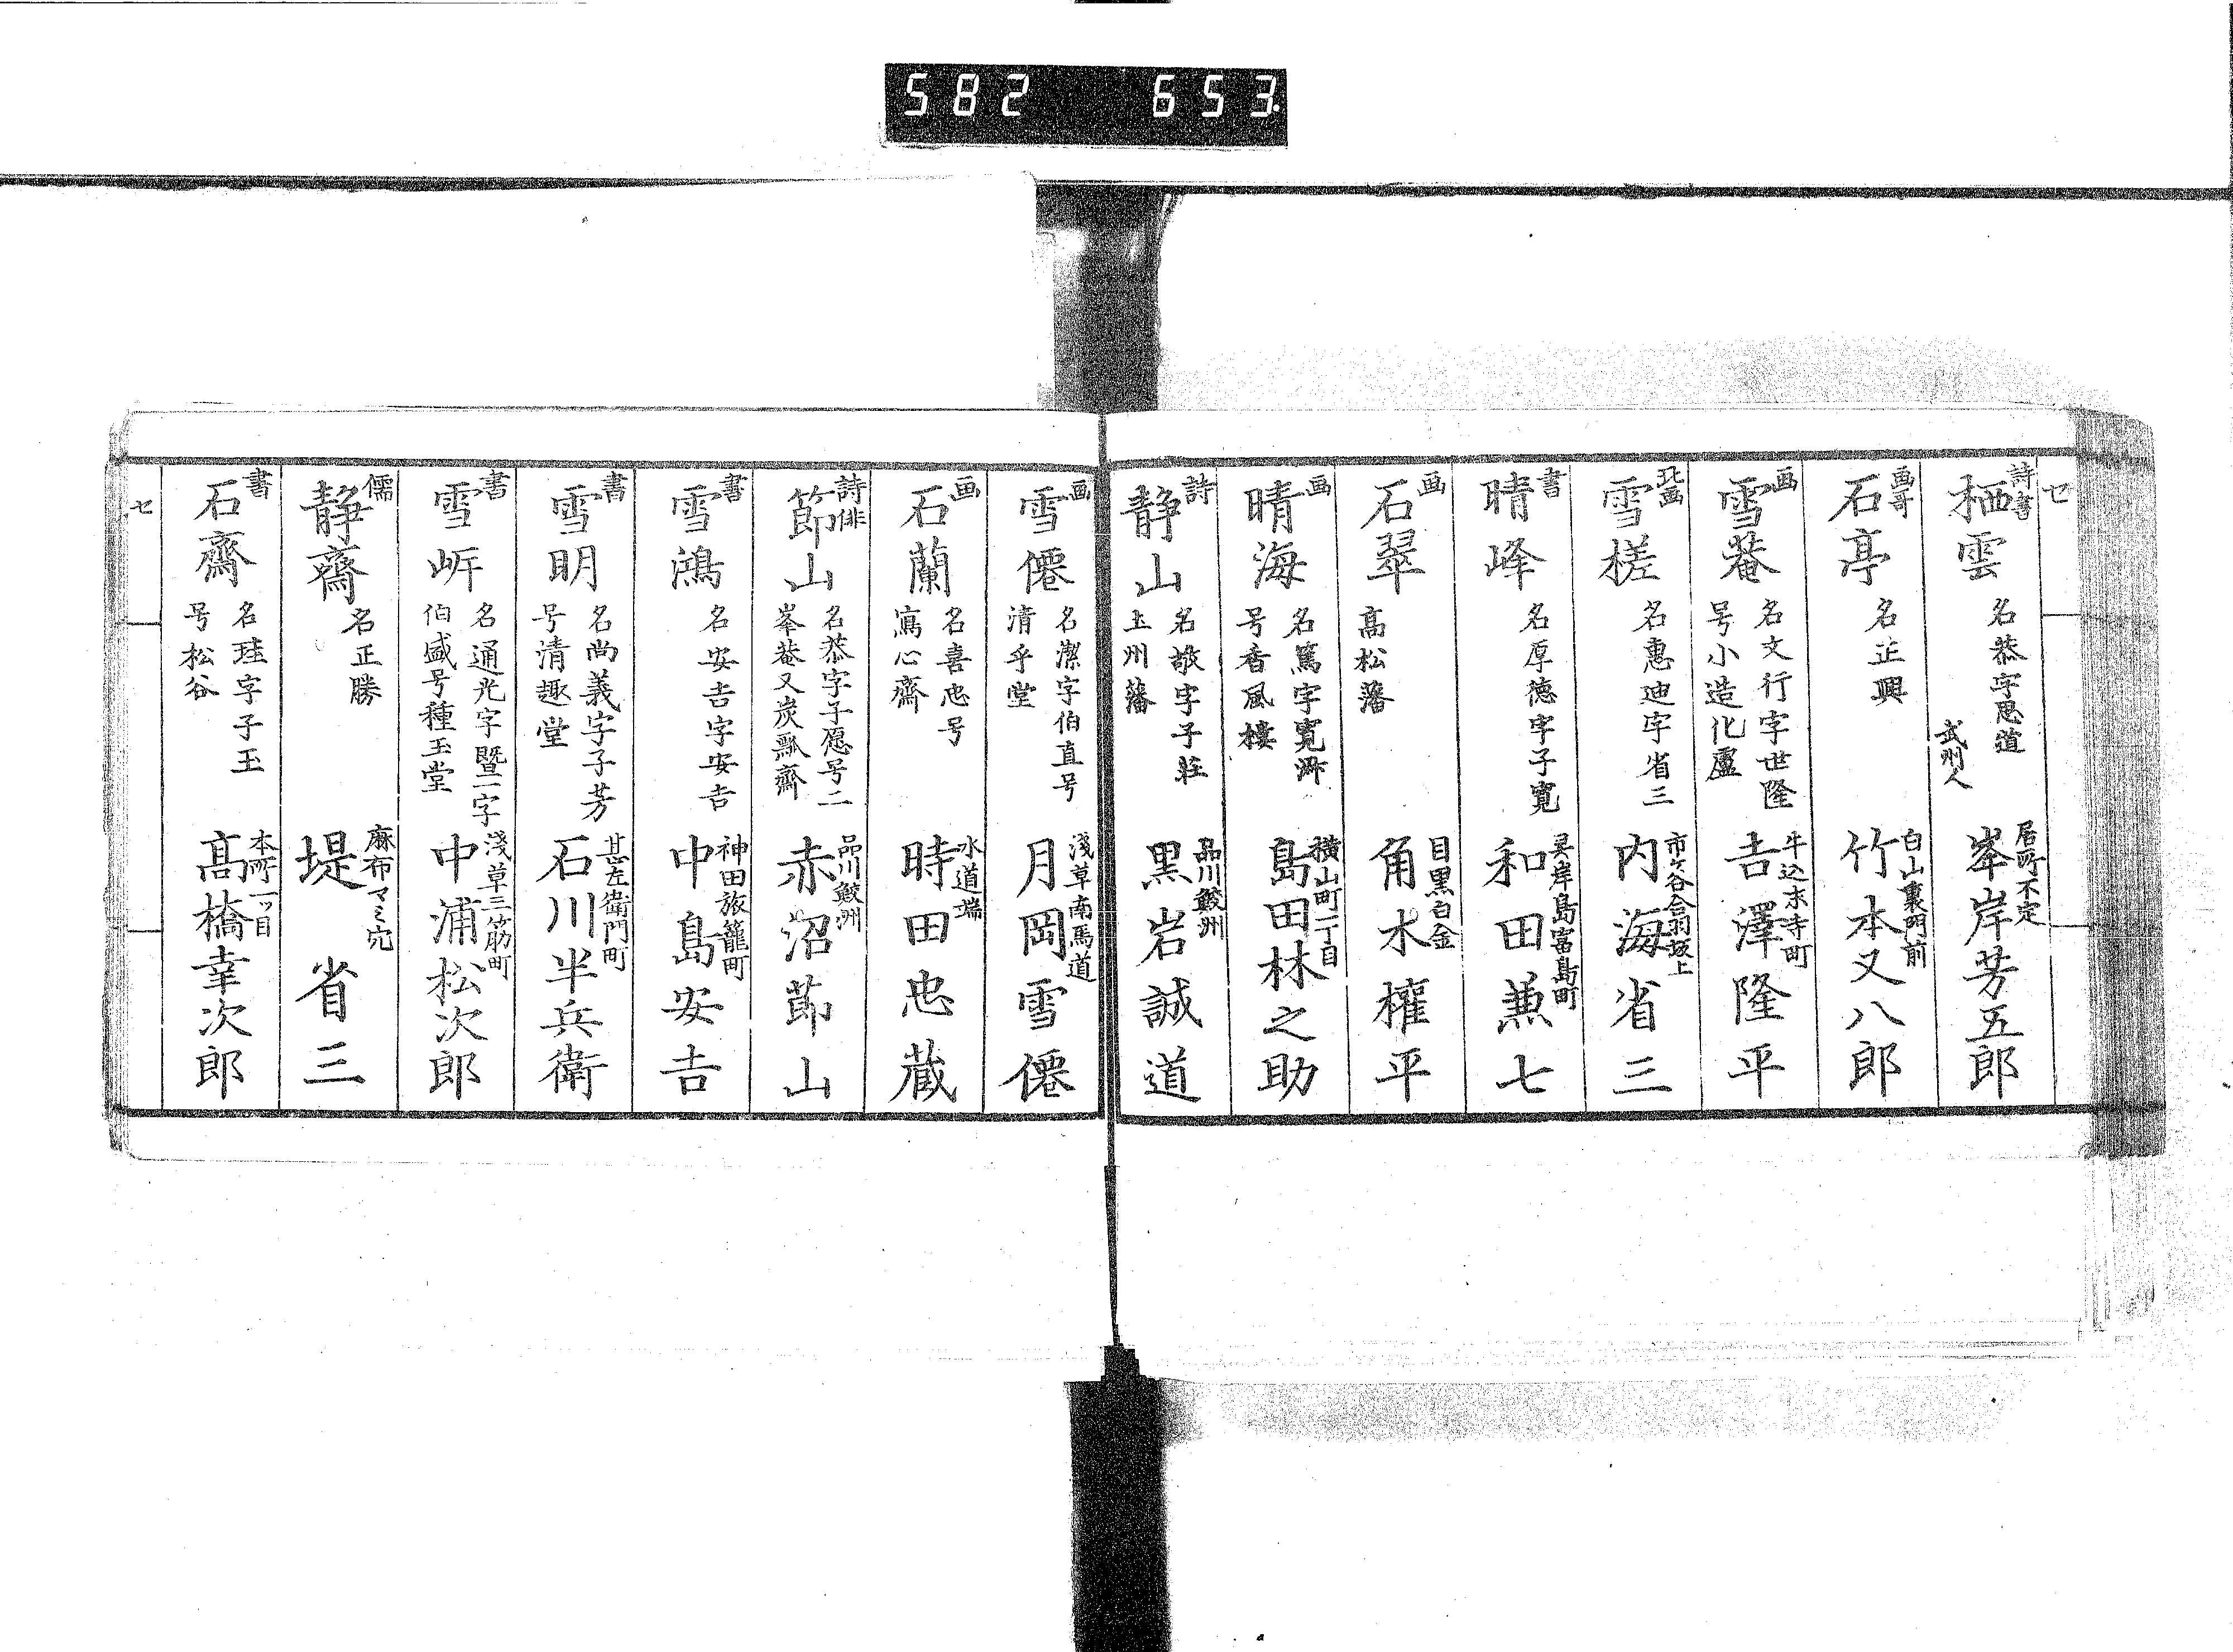 582 653.
セ
詩書 栖雲 名恭字思道 武州人 居所不定 峯岸芳五郎
画哥 石亭 名正興 白山裏門前 竹本又八郎
画 雪菴 名文行字世隆 号小造化廬 牛込末寺町 吉澤隆平
北画 雪槎 名惠迪字省三 市ヶ谷合羽坂上 内海省三
書 晴峰 名厚徳字子寛 灵岸島富島町 和田兼七
画 石翠 高松藩 目黒白金 角木權平
画 晴海 名篤字寛 号香風樓 横山町一丁目 島田林之助
詩 静山 名敬字子莊 上州藩 品川鮫洲 黒岩誠道
画 雪僊 名潔字伯直号 清乎堂 淺草南馬道 月岡雪僊
画 石蘭 名喜忠号 寫心齋 水道端 時田忠蔵
詩俳 節山 名恭字子愿号二 峯菴又炭瓢齋 品川鮫洲 赤沼節山
書 雪鴻 名安吉字安吉 神田旅籠町 中島安吉
書 雪明 名尚義字子芳 号清趣堂 甚左衛門町 石川半兵衛
書 雪岍 名通光字曁一字 伯盛号種玉堂 淺草三筋町 中浦松次郎
儒 静齋 名正勝 麻布マミ穴 堤省三
書 石齋 名珪字子玉 号松谷 本所一ッ目 髙橋幸次郎
セ